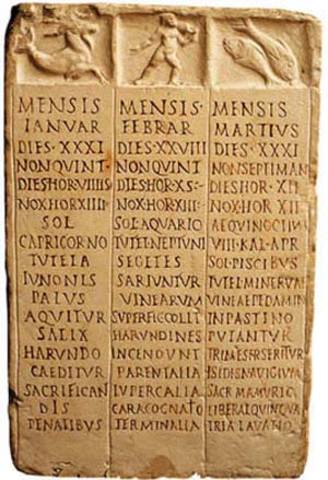 MENSIS
IANVAR
DIES·XXXI
NONQVINT
DIESHORVIIIIS
NOXHORXIIII
SOL
CAPRICORNO
TVTELA
IVNONIS
PALVS
AQVITVR
SALIX
HARVNDO
CAEDITVR
SACRIFICAN
DIS
PENATIBVS
MENSIS·
FEBRAR
DIES·XXVIII
NONQVINT
DIESHOR·XS
NOXHORXIII
SOLAQVARIO
TVTELNEPTVNI
SEGETES
SARIVNTVR
VINEARVM
SVPERFICCOLIT
HARVNDINES
INCENDVNT
PARENTALIA
LVPERCALIA
CARACOGNATO
TERMINALIA
MENSIS
MARTIVS
DIES·XXXI
NONSEPTIMAN
DIESHOR·XII
NOX·HOR·XII
AEQVINOCTIVM
VIII·KAL·APR
SOL·PISCIBVS
TVTELMINERVAE
VINEAEPEDAMIN
INPASTINO
PVTANTVR
TRIMESTRSERITVR
ISIDISNAVIGIVM
SACR MAMVRIO
LIBERALQVINQVA
TRIA LAVATIO